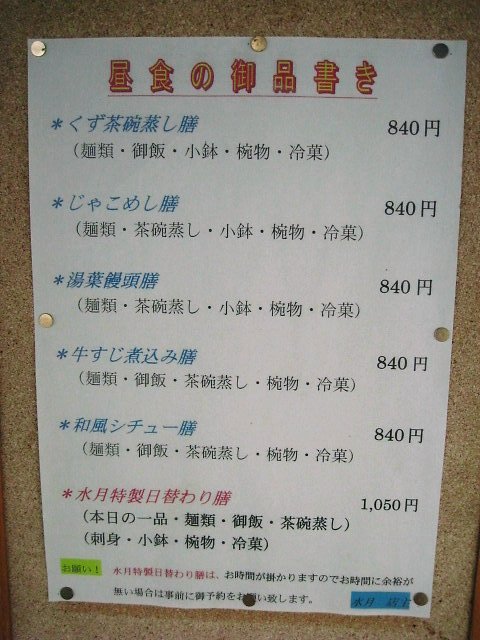 昼食の御品書き
＊くず茶碗蒸し膳 840円
（麺類・御飯・小鉢・椀物・冷菓）
＊じゃこめし膳 840円
（麺類・茶碗蒸し・小鉢・椀物・冷菓）
＊湯葉饅頭膳 840円
（麺類・茶碗蒸し・小鉢・椀物・冷菓）
＊牛すじ煮込み膳 840円
（麺類・御飯・茶碗蒸し・椀物・冷菓）
＊和風シチュー膳 840円
（麺類・御飯・茶碗蒸し・椀物・冷菓）
＊水月特製日替わり膳 1,050円
（本日の一品・麺類・御飯・茶碗蒸し）
（刺身・小鉢・椀物・冷菓）
お願い！ 水月特製日替わり膳は、お時間が掛かりますのでお時間に余裕が
無い場合は事前に御予約をお願い致します。
水月 店主